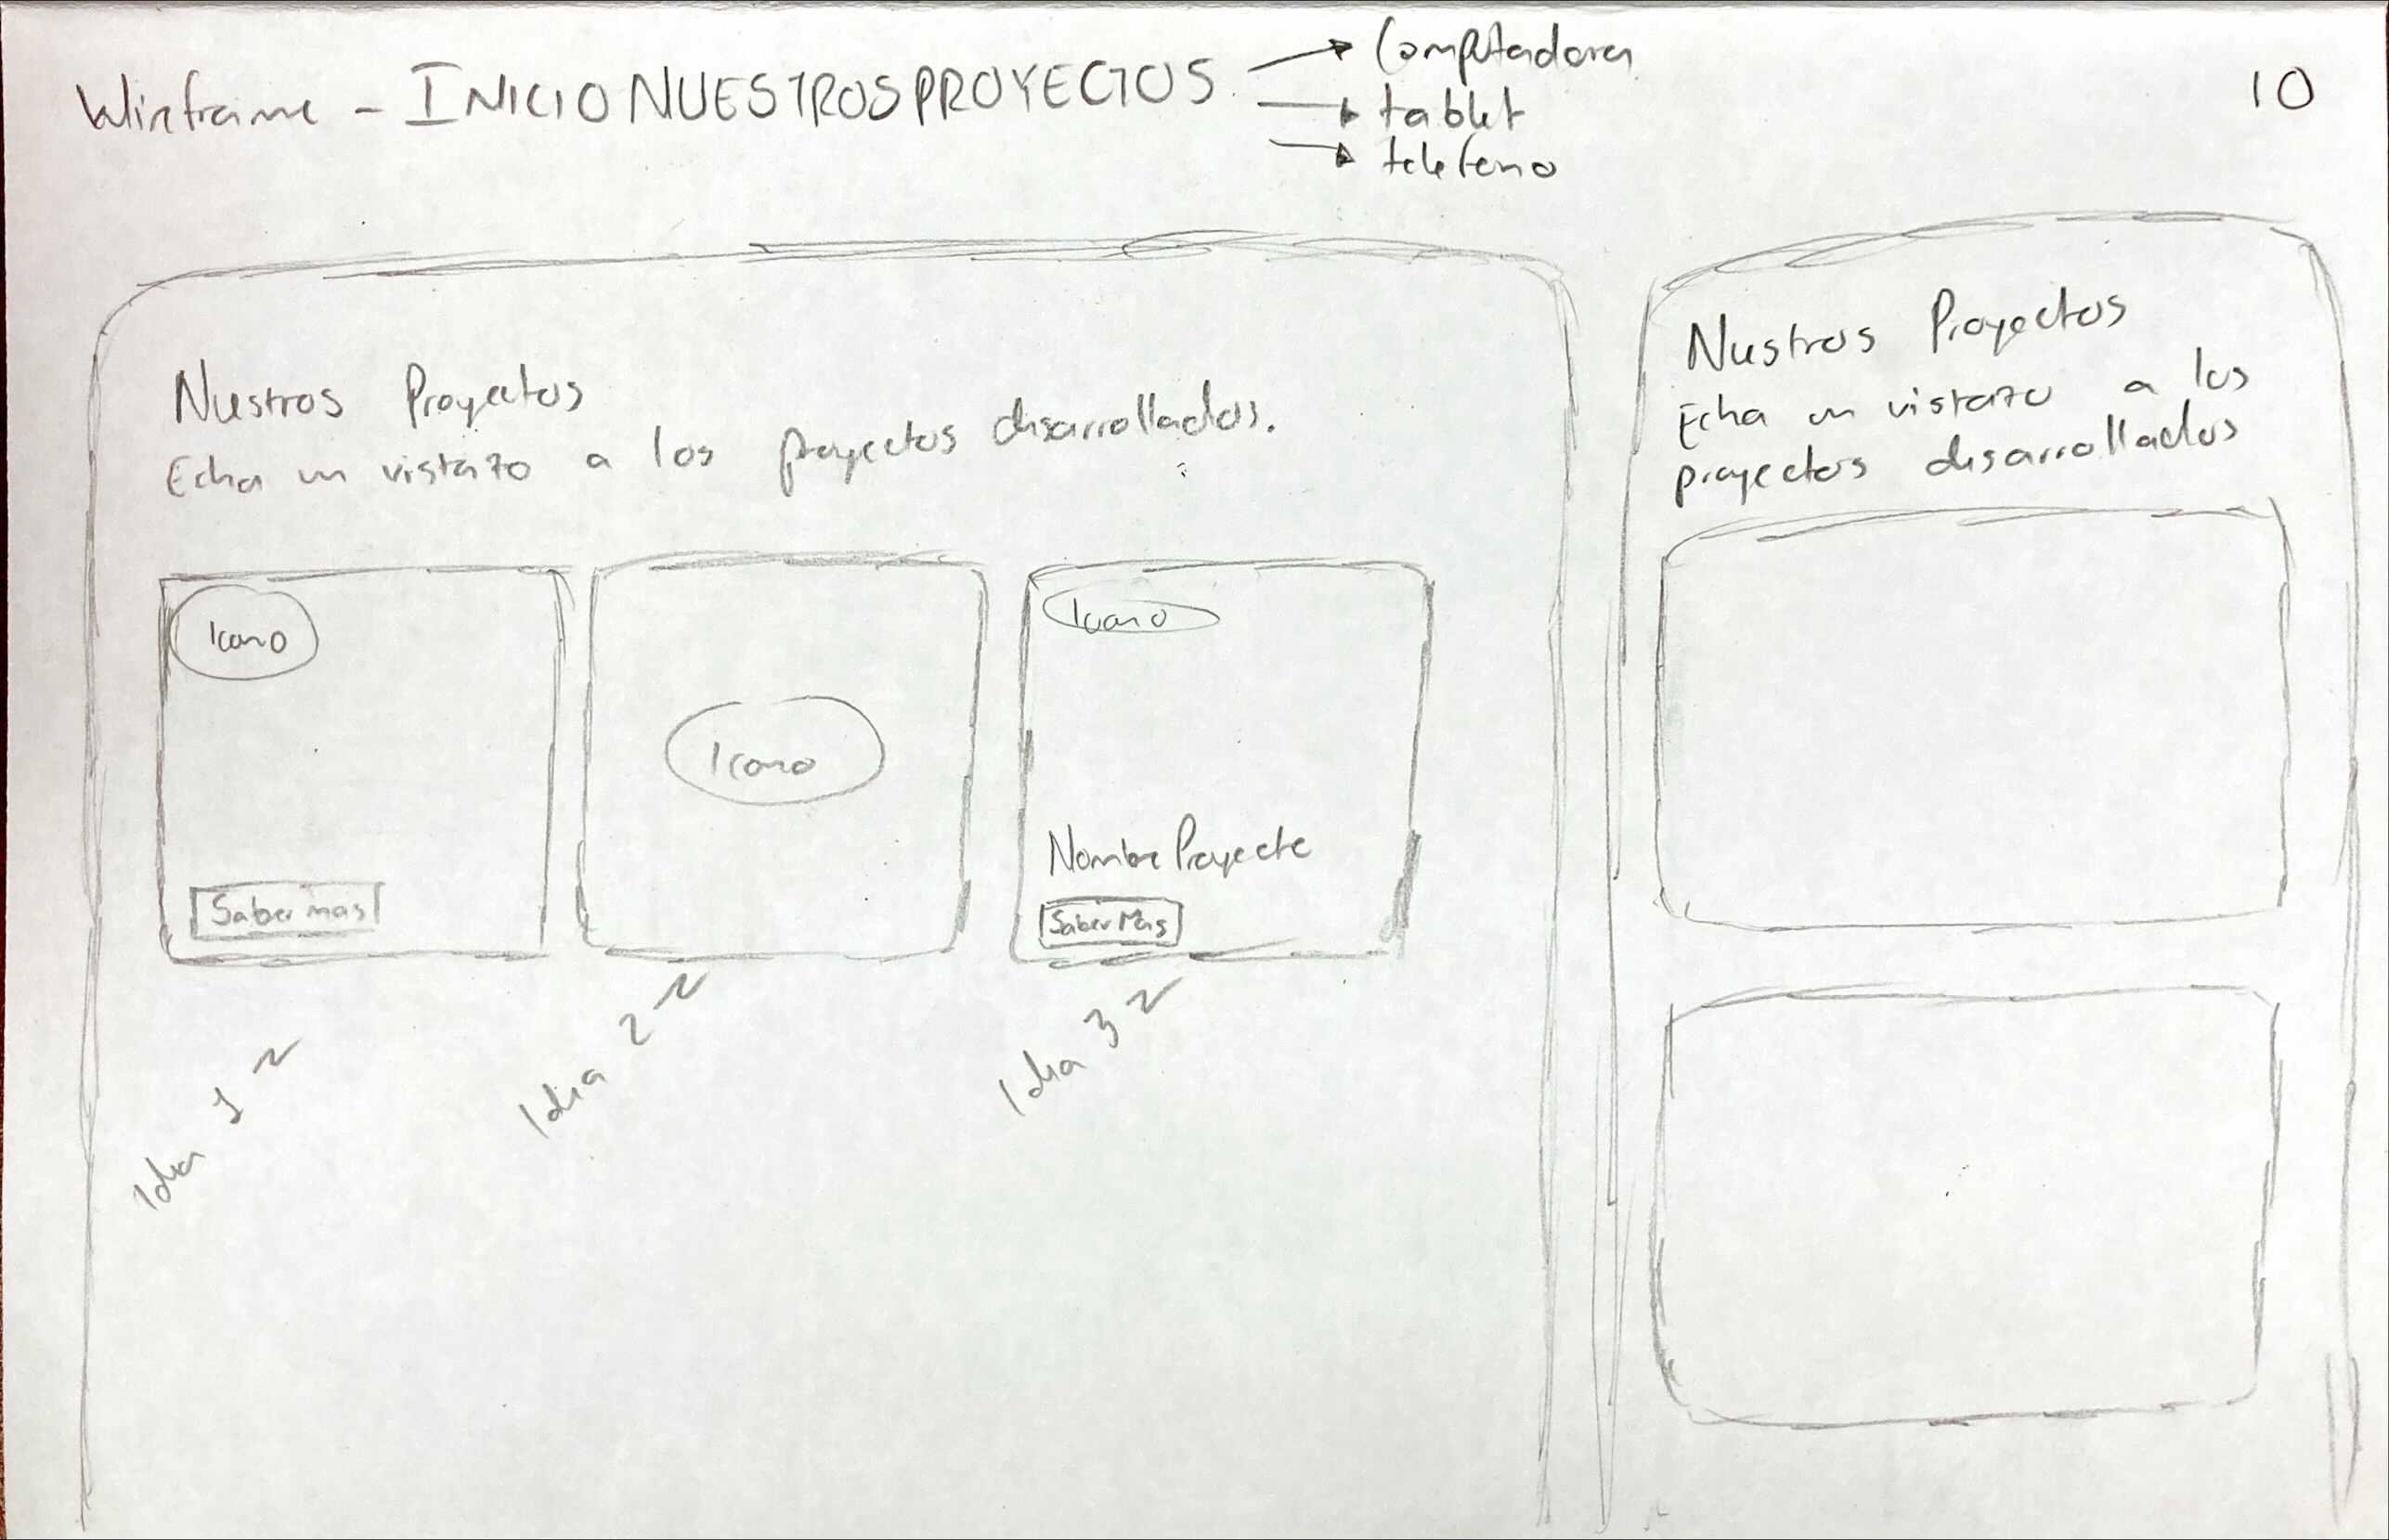 Wireframe - INICIO NUESTROS PROYECTOS
Computadora
tablet
telefono
10
Nuestros Proyectos
Echa un vistazo a los proyectos desarrollados.
Icono
Saber mas
Icono
Icono
Nombre Proyecto
Saber Mas
Idea 1
Idea 2
Idea 3
Nuestros Proyectos
Echa un vistazo a los
proyectos desarrollados